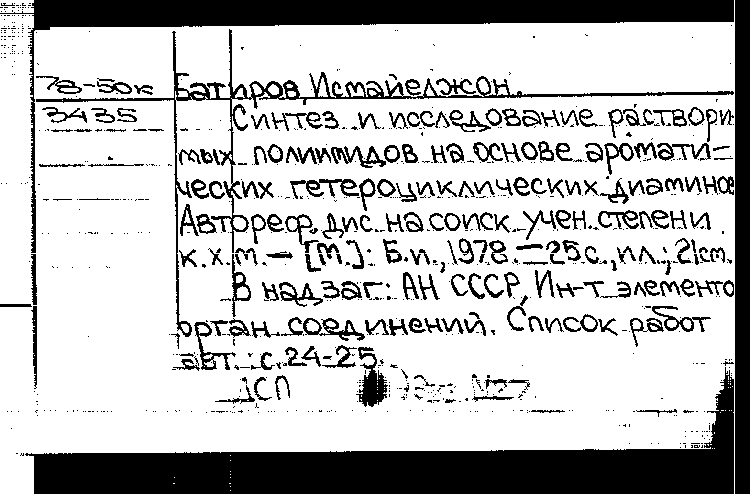 78-50к Батиров, Исмайелжон.
3435 Синтез и исследование раствори
мых полиимидов на основе аромати-
ческих гетероциклических диаминов
Автореф. дис. на соиск. учен. степени
к.х.н. — [М.]: Б.и., 1978. — 25 с., ил.; 21 см.
В надзаг: АН СССР, Ин-т элементо
орган. соединений. Список работ
авт.: с. 24-25.
ДСП №27